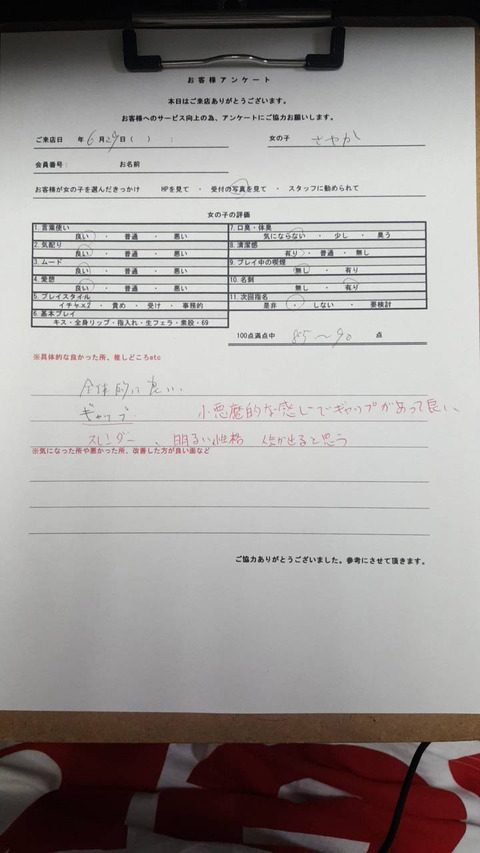 お客様アンケート
本日はご来店ありがとうございます。
お客様へのサービス向上の為、アンケートにご協力お願いします。
ご来店日 年 6月29日( ) : 女の子 さやか
会員番号: お名前
お客様が女の子を選んだきっかけ HPを見て ・ 受付の写真を見て ・ スタッフに勧められて
女の子の評価
1. 言葉使い
良い ・ 普通 ・ 悪い
2. 気配り
良い ・ 普通 ・ 悪い
3. ムード
良い ・ 普通 ・ 悪い
4. 愛想
良い ・ 普通 ・ 悪い
5. プレイスタイル
イチャ×2 ・ 責め ・ 受け ・ 事務的
6. 基本プレイ
キス・全身リップ・指入れ・生フェラ・素股・69
7. 口臭・体臭
気にならない ・ 少し ・ 臭う
8. 清潔感
有り ・ 普通 ・ 無し
9. プレイ中の喫煙
無し ・ 有り
10. 名刺
無し ・ 有り
11. 次回指名
是非 ・ しない ・ 要検討
100点満点中 85〜90 点
※具体的な良かった所、推しどころetc
全体的に良い。
ギャップ 小悪魔的な感じでギャップがあって良い、
スレンダー、明るい性格 出ると思う
※気になった所や悪かった所、改善した方が良い面など
ご協力ありがとうございました。参考にさせて頂きます。